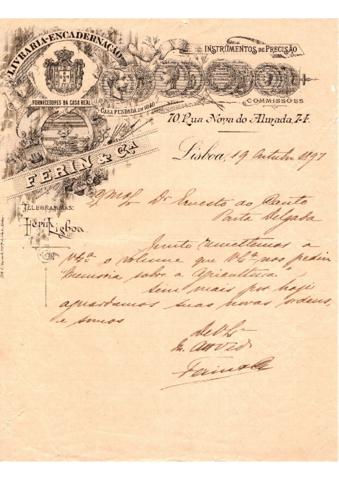 LIVRARIA-ENCADERNAÇÃO
INSTRUMENTOS DE PRECISÃO
FORNECEDORES DA CASA REAL
CASA FUNDADA EM 1840
COMMISSÕES
70, Rua Nova do Almada, 74
FERIN & Cª
Lisboa, 19 Outubro 1897
TELEGRAMMAS:
Ferin Lisboa
Dr Ernesto do Canto
Ponta Delgada
Junto remettemos a
V. Exª o volume que V. Exª nos pediu
Memoria sobre a Apicultura
Sem mais por hoje
aguardamos suas novas ordens,
e somos
de V. Exª
Ferin & Cª